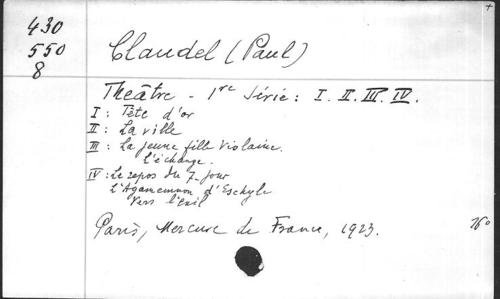 430
550
8
Claudel (Paul)
Théâtre - 1re Série : I. II. III. IV.
I : Tête d'or
II : La ville
III : La jeune fille Violaine.
L'échange.
IV : Le repos du 7. jour
L'Agamemnon d'Eschyle
Vers l'exil
Paris, Mercure de France, 1923.